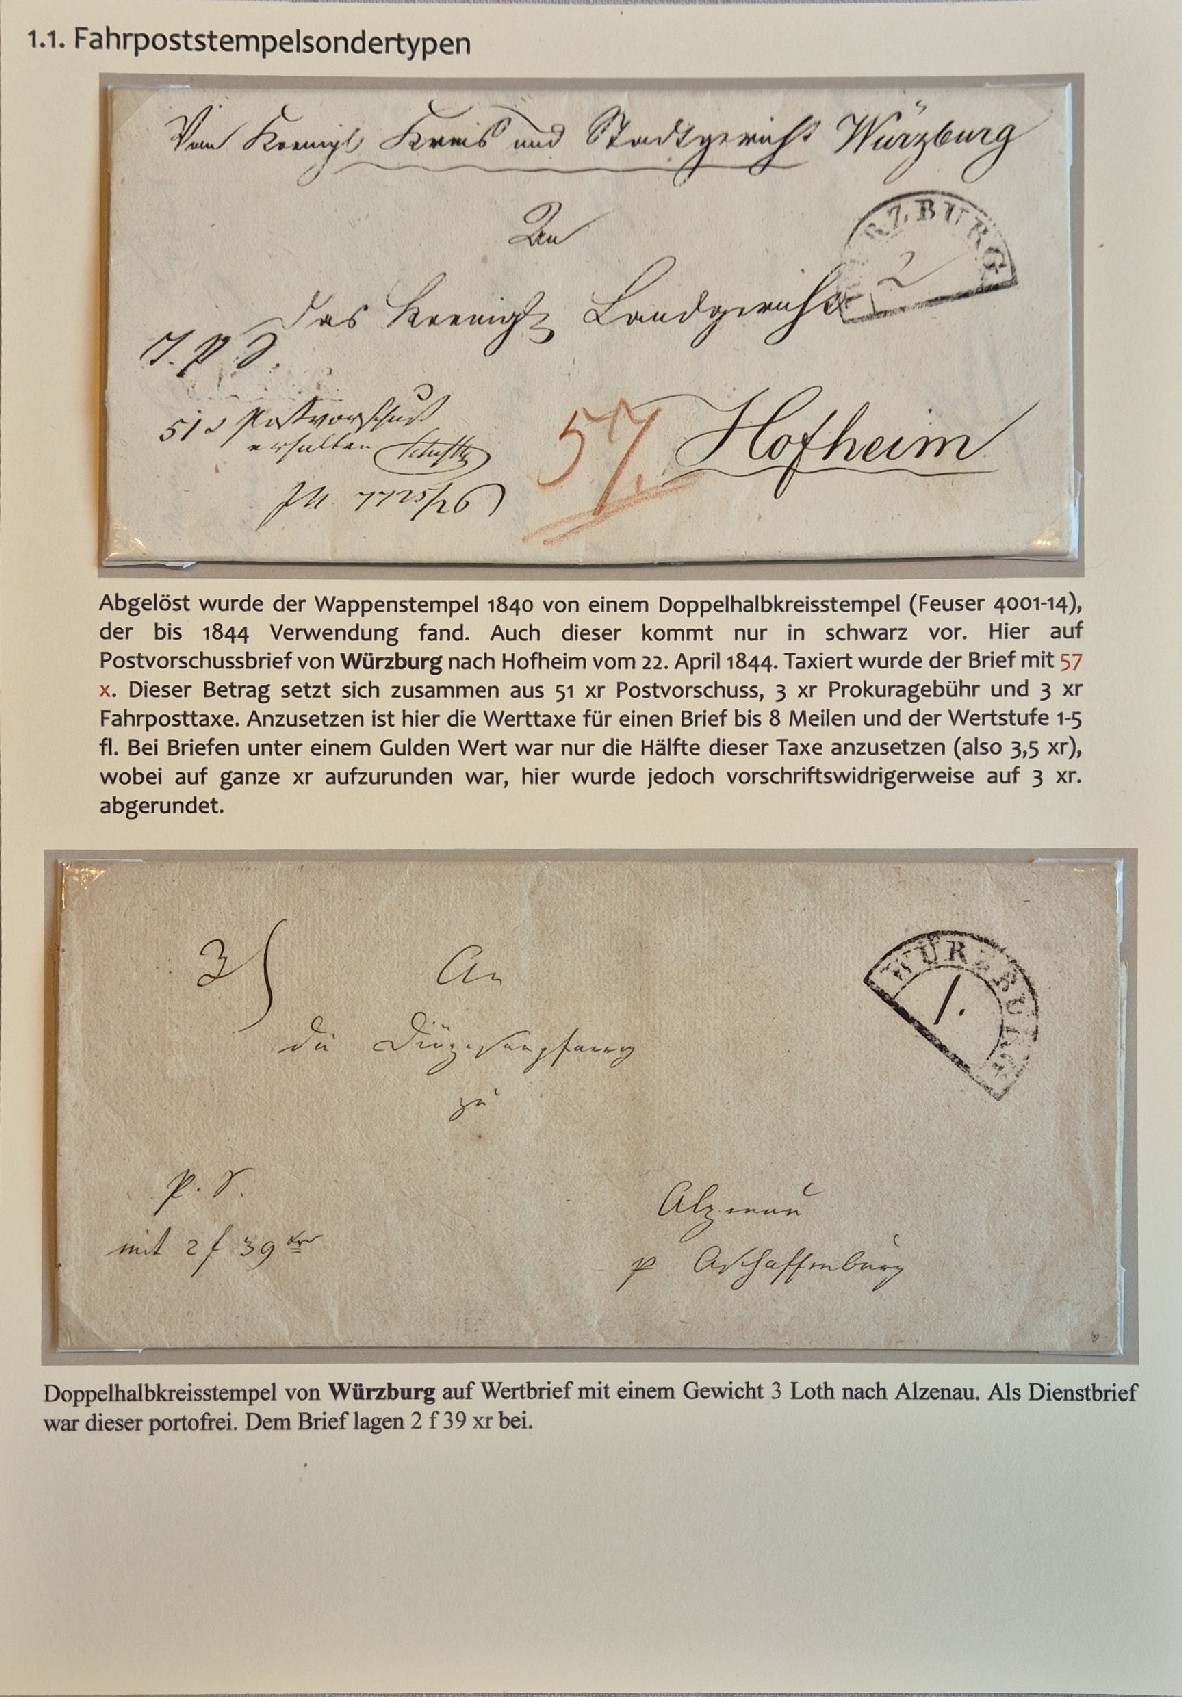 1.1. Fahrpoststempelsondertypen
Von Koenigl. Kreis und Stadtgericht Würzburg
WÜRZBURG
2
An
das Koenigl. Landgericht
P. S.
51 x Postvorschuß
erhalten
57
Hofheim
7725/26
Abgelöst wurde der Wappenstempel 1840 von einem Doppelhalbkreisstempel (Feuser 4001-14),
der bis 1844 Verwendung fand. Auch dieser kommt nur in schwarz vor. Hier auf
Postvorschussbrief von Würzburg nach Hofheim vom 22. April 1844. Taxiert wurde der Brief mit 57
x. Dieser Betrag setzt sich zusammen aus 51 xr Postvorschuss, 3 xr Prokuragebühr und 3 xr
Fahrposttaxe. Anzusetzen ist hier die Werttaxe für einen Brief bis 8 Meilen und der Wertstufe 1-5
fl. Bei Briefen unter einem Gulden Wert war nur die Hälfte dieser Taxe anzusetzen (also 3,5 xr),
wobei auf ganze xr aufzurunden war, hier wurde jedoch vorschriftswidrigerweise auf 3 xr.
abgerundet.
3
An
WÜRZBURG
1.
die
zu
P. S.
mit 2 f 39
Alzenau
p Aschaffenburg
Doppelhalbkreisstempel von Würzburg auf Wertbrief mit einem Gewicht 3 Loth nach Alzenau. Als Dienstbrief
war dieser portofrei. Dem Brief lagen 2 f 39 xr bei.